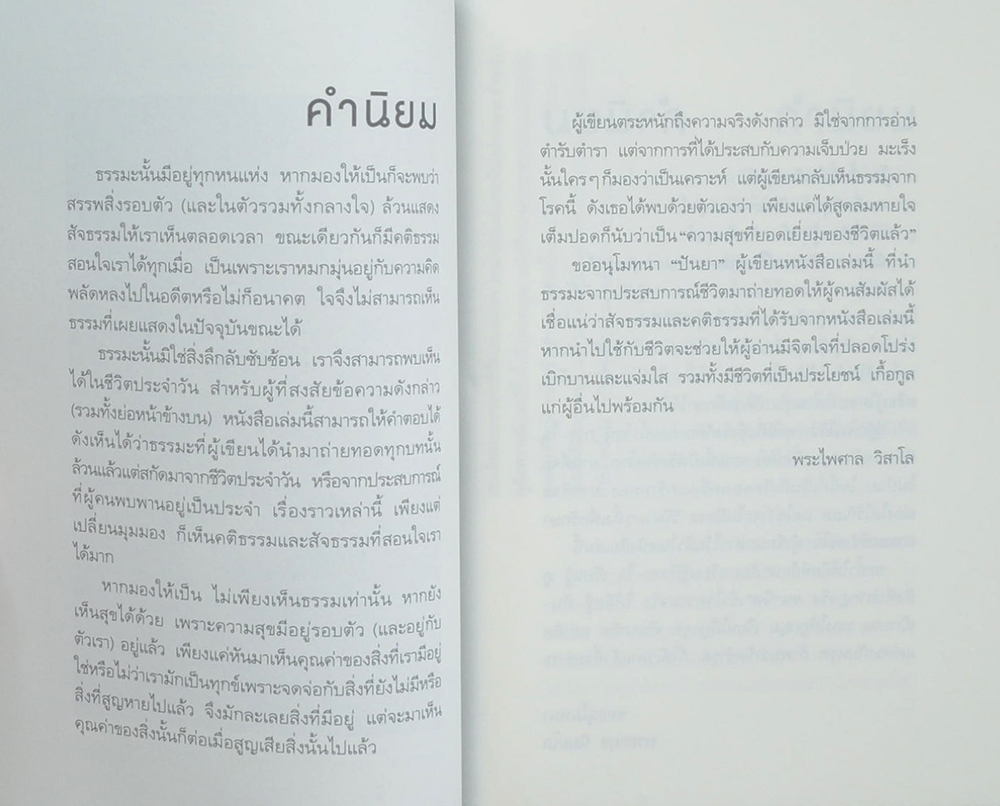 คำนิยม
ธรรมะนั้นมีอยู่ทุกหนแห่ง หากมองให้เป็นก็จะพบว่า
สรรพสิ่งรอบตัว (และในตัวรวมทั้งกลางใจ) ล้วนแสดง
สัจธรรมให้เราเห็นตลอดเวลา ขณะเดียวกันก็มีคติธรรม
สอนใจเราได้ทุกเมื่อ เป็นเพราะเราหมกมุ่นอยู่กับความคิด
พลัดหลงไปในอดีตหรือไม่ก็อนาคต ใจจึงไม่สามารถเห็น
ธรรมที่เผยแสดงในปัจจุบันขณะได้
ธรรมะนั้นมิใช่สิ่งลึกลับซับซ้อน เราจึงสามารถพบเห็น
ได้ในชีวิตประจำวัน สำหรับผู้ที่สงสัยข้อความดังกล่าว
(รวมทั้งย่อหน้าข้างบน) หนังสือเล่มนี้สามารถให้คำตอบได้
ดังเห็นได้ว่าธรรมะที่ผู้เขียนได้นำมาถ่ายทอดทุกบทนั้น
ล้วนแล้วแต่สกัดมาจากชีวิตประจำวัน หรือจากประสบการณ์
ที่ผู้คนพบพานอยู่เป็นประจำ เรื่องราวเหล่านี้ เพียงแต่
เปลี่ยนมุมมอง ก็เห็นคติธรรมและสัจธรรมที่สอนใจเรา
ได้มาก
หากมองให้เป็น ไม่เพียงเห็นธรรมเท่านั้น หากยัง
เห็นสุขได้ด้วย เพราะความสุขมีอยู่รอบตัว (และอยู่กับ
ตัวเรา) อยู่แล้ว เพียงแค่หันมาเห็นคุณค่าของสิ่งที่เรามีอยู่
ใช่หรือไม่ว่าเรามักเป็นทุกข์เพราะจดจ่อกับสิ่งที่ยังไม่มีหรือ
สิ่งที่สูญหายไปแล้ว จึงมักละเลยสิ่งที่มีอยู่ แต่จะมาเห็น
คุณค่าของสิ่งนั้นก็ต่อเมื่อสูญเสียสิ่งนั้นไปแล้ว
ผู้เขียนตระหนักถึงความจริงดังกล่าว มิใช่จากการอ่าน
ตำรับตำรา แต่จากการที่ได้ประสบกับความเจ็บป่วย มะเร็ง
นั้นใครๆ ก็มองว่าเป็นเคราะห์ แต่ผู้เขียนกลับเห็นธรรมจาก
โรคนี้ ดังเธอได้พบด้วยตัวเองว่า เพียงแค่ได้สูดลมหายใจ
เต็มปอดก็นับว่าเป็น “ความสุขที่ยอดเยี่ยมของชีวิตแล้ว”
ขออนุโมทนา “ปันยา” ผู้เขียนหนังสือเล่มนี้ ที่นำ
ธรรมะจากประสบการณ์ชีวิตมาถ่ายทอดให้ผู้คนสัมผัสได้
เชื่อแน่ว่าสัจธรรมและคติธรรมที่ได้รับจากหนังสือเล่มนี้
หากนำไปใช้กับชีวิตจะช่วยให้ผู้อ่านมีจิตใจที่ปลอดโปร่ง
เบิกบานและแจ่มใส รวมทั้งมีชีวิตที่เป็นประโยชน์ เกื้อกูล
แก่ผู้อื่นไปพร้อมกัน
พระไพศาล วิสาโล